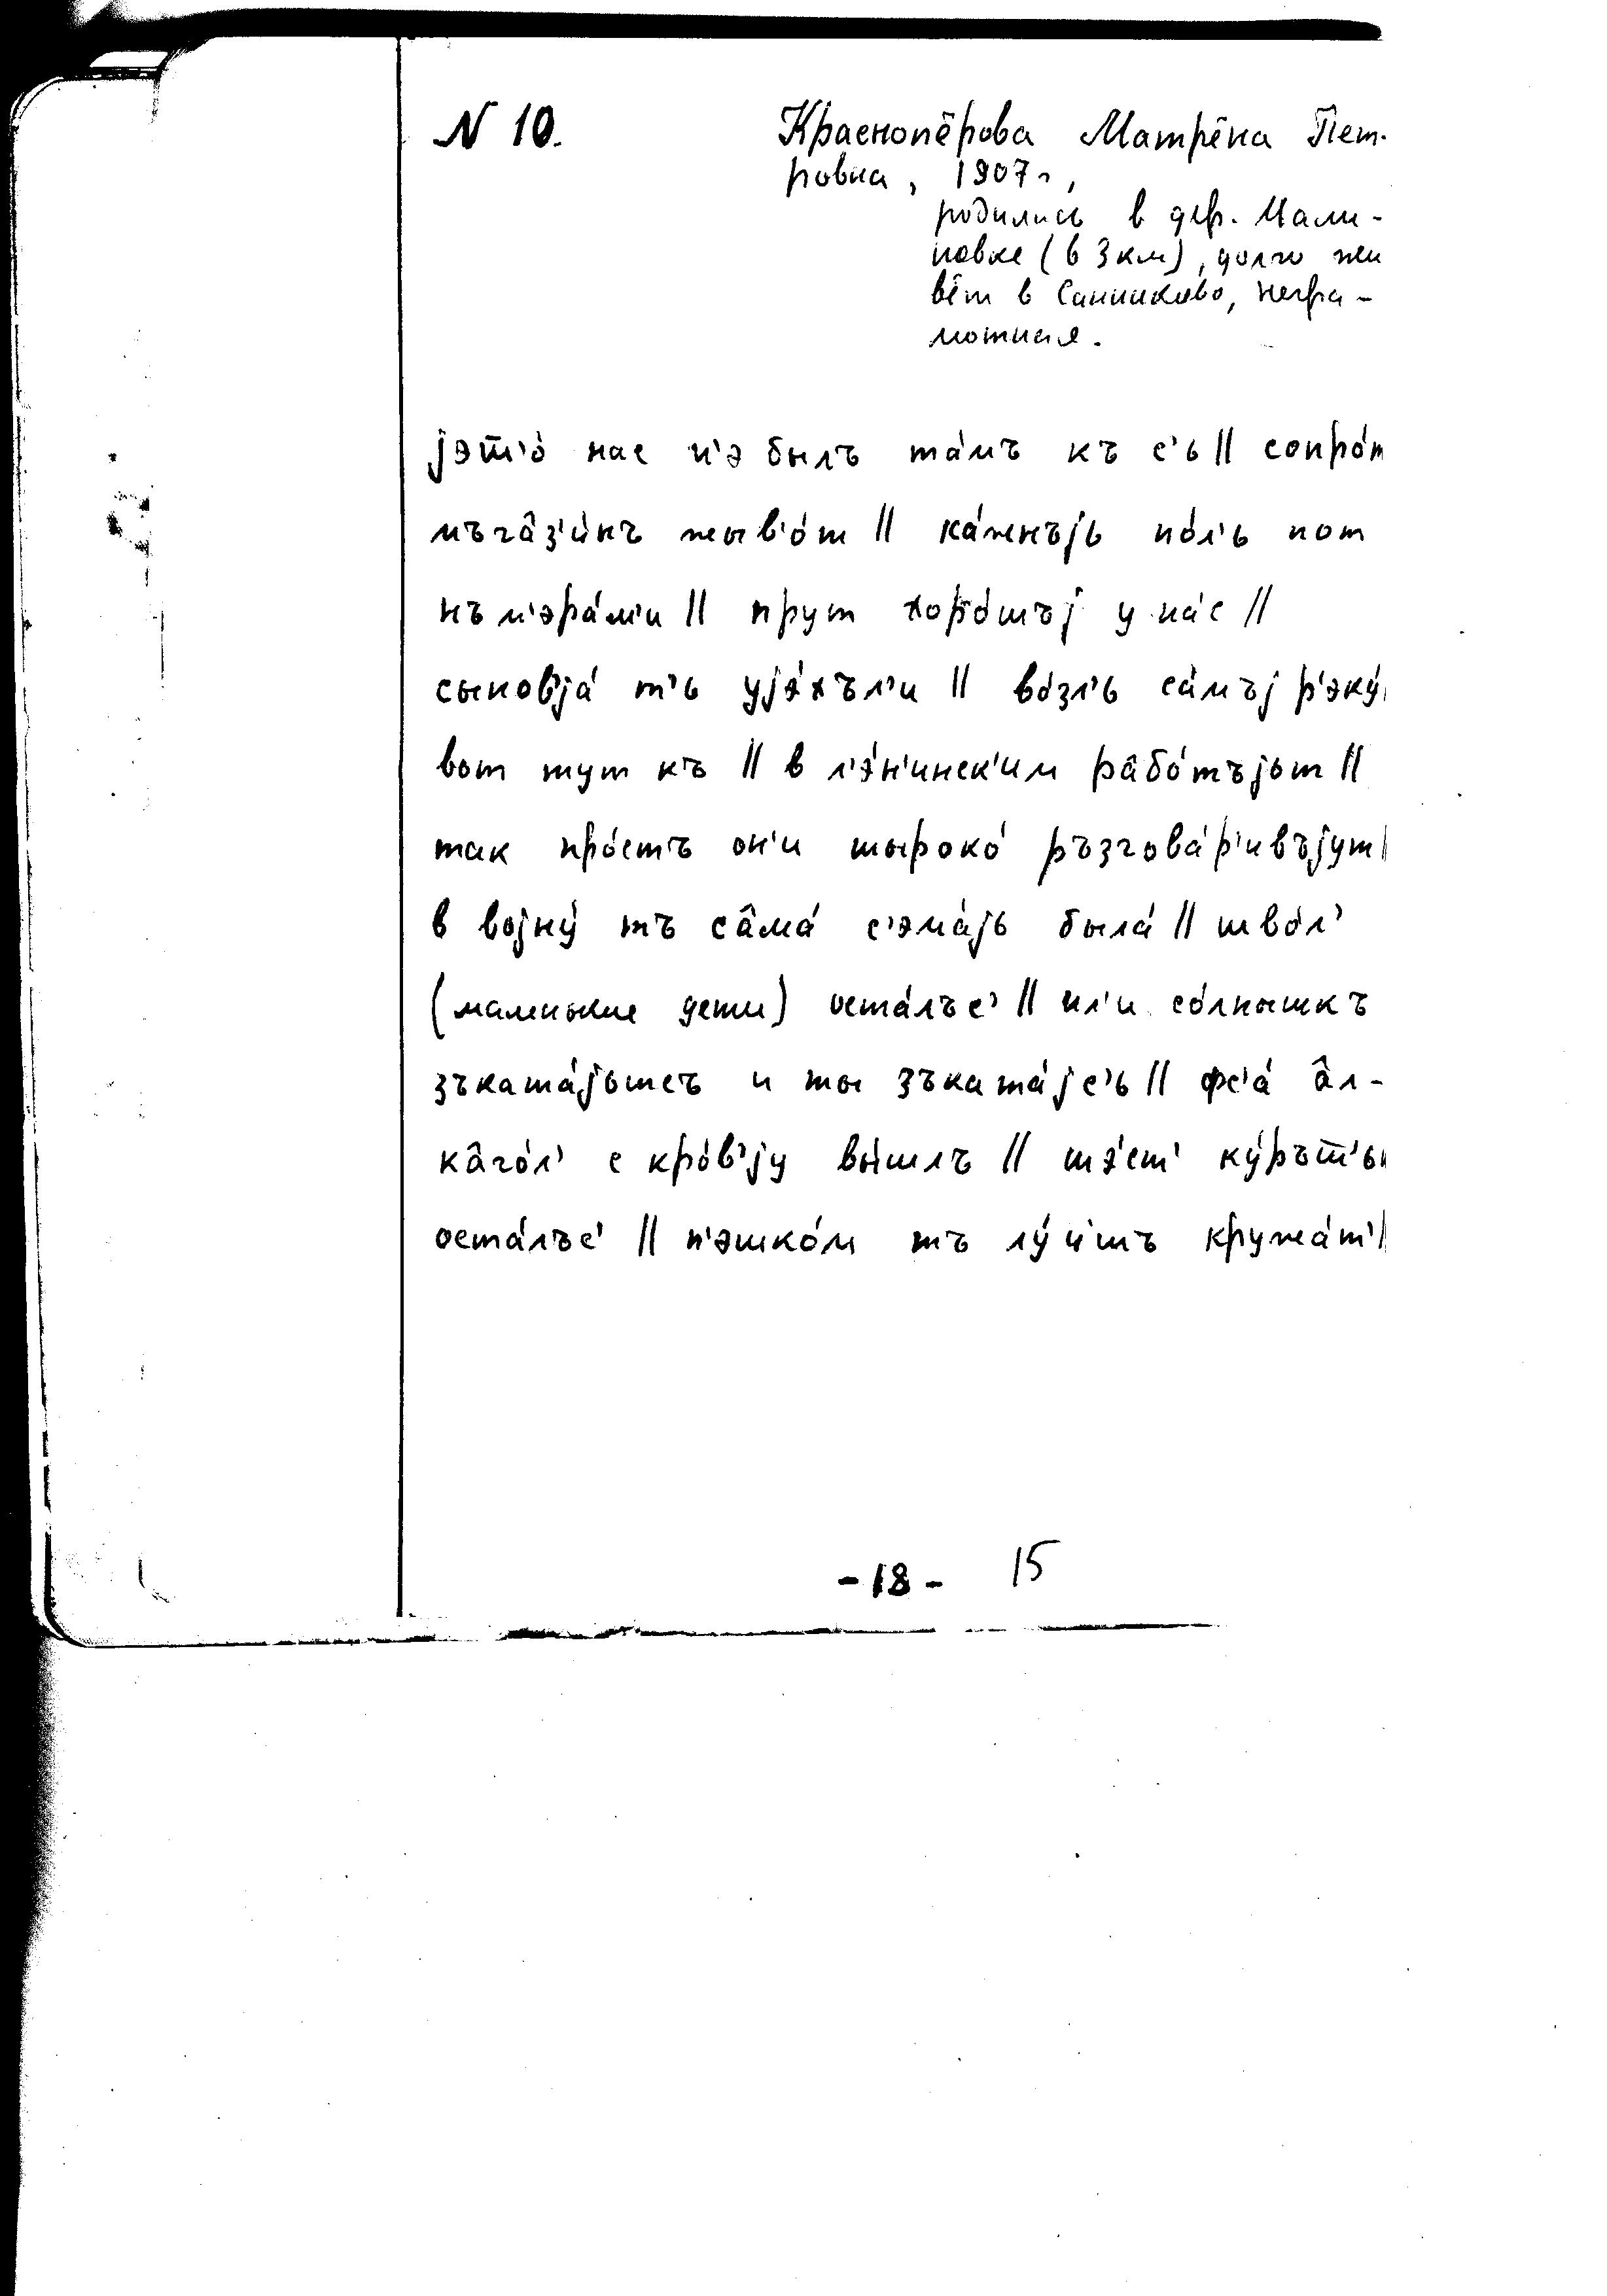 N 10.
Краснопёрова Матрёна Пет-
ровна, 1907г,
родилась в дер. Мали-
новке (в 3 км), долго жи
вёт в Санниково, негра-
мотная.
јэт̅'о́ нас н'э былъ та́мъ къ с'ь || сопро́т
мъгâз'и́нъ жыв'о́т || ка́жнъјь по́л'ь пот
нъм'эра́м'и || прут хоро́шъј у на́с ||
сыновја́ т'ь ује́хъл'и || во́зл'ь са́мъј р'эку́
вот тут къ || в л'э́н'инск'им рâбо́тъјьт ||
так про́стъ он'и шыроко́ ръзгова́р'ивъјут ||
в војну́ тъ сâма́ с'эма́јь была́ || шво́л'
(маленькие дети) оста́лъс' || ил'и со́лнышкъ
зъката́јьтсъ и ты зъката́јс'ь || фс'а́ âл-
кâго́л' с кро́в'ју вы́шлъ || шэ́ст' ку́рът̅'ьк
оста́лъс' || п'эшко́м тъ лу́чшъ кружа́т' ||
- 18 - 15